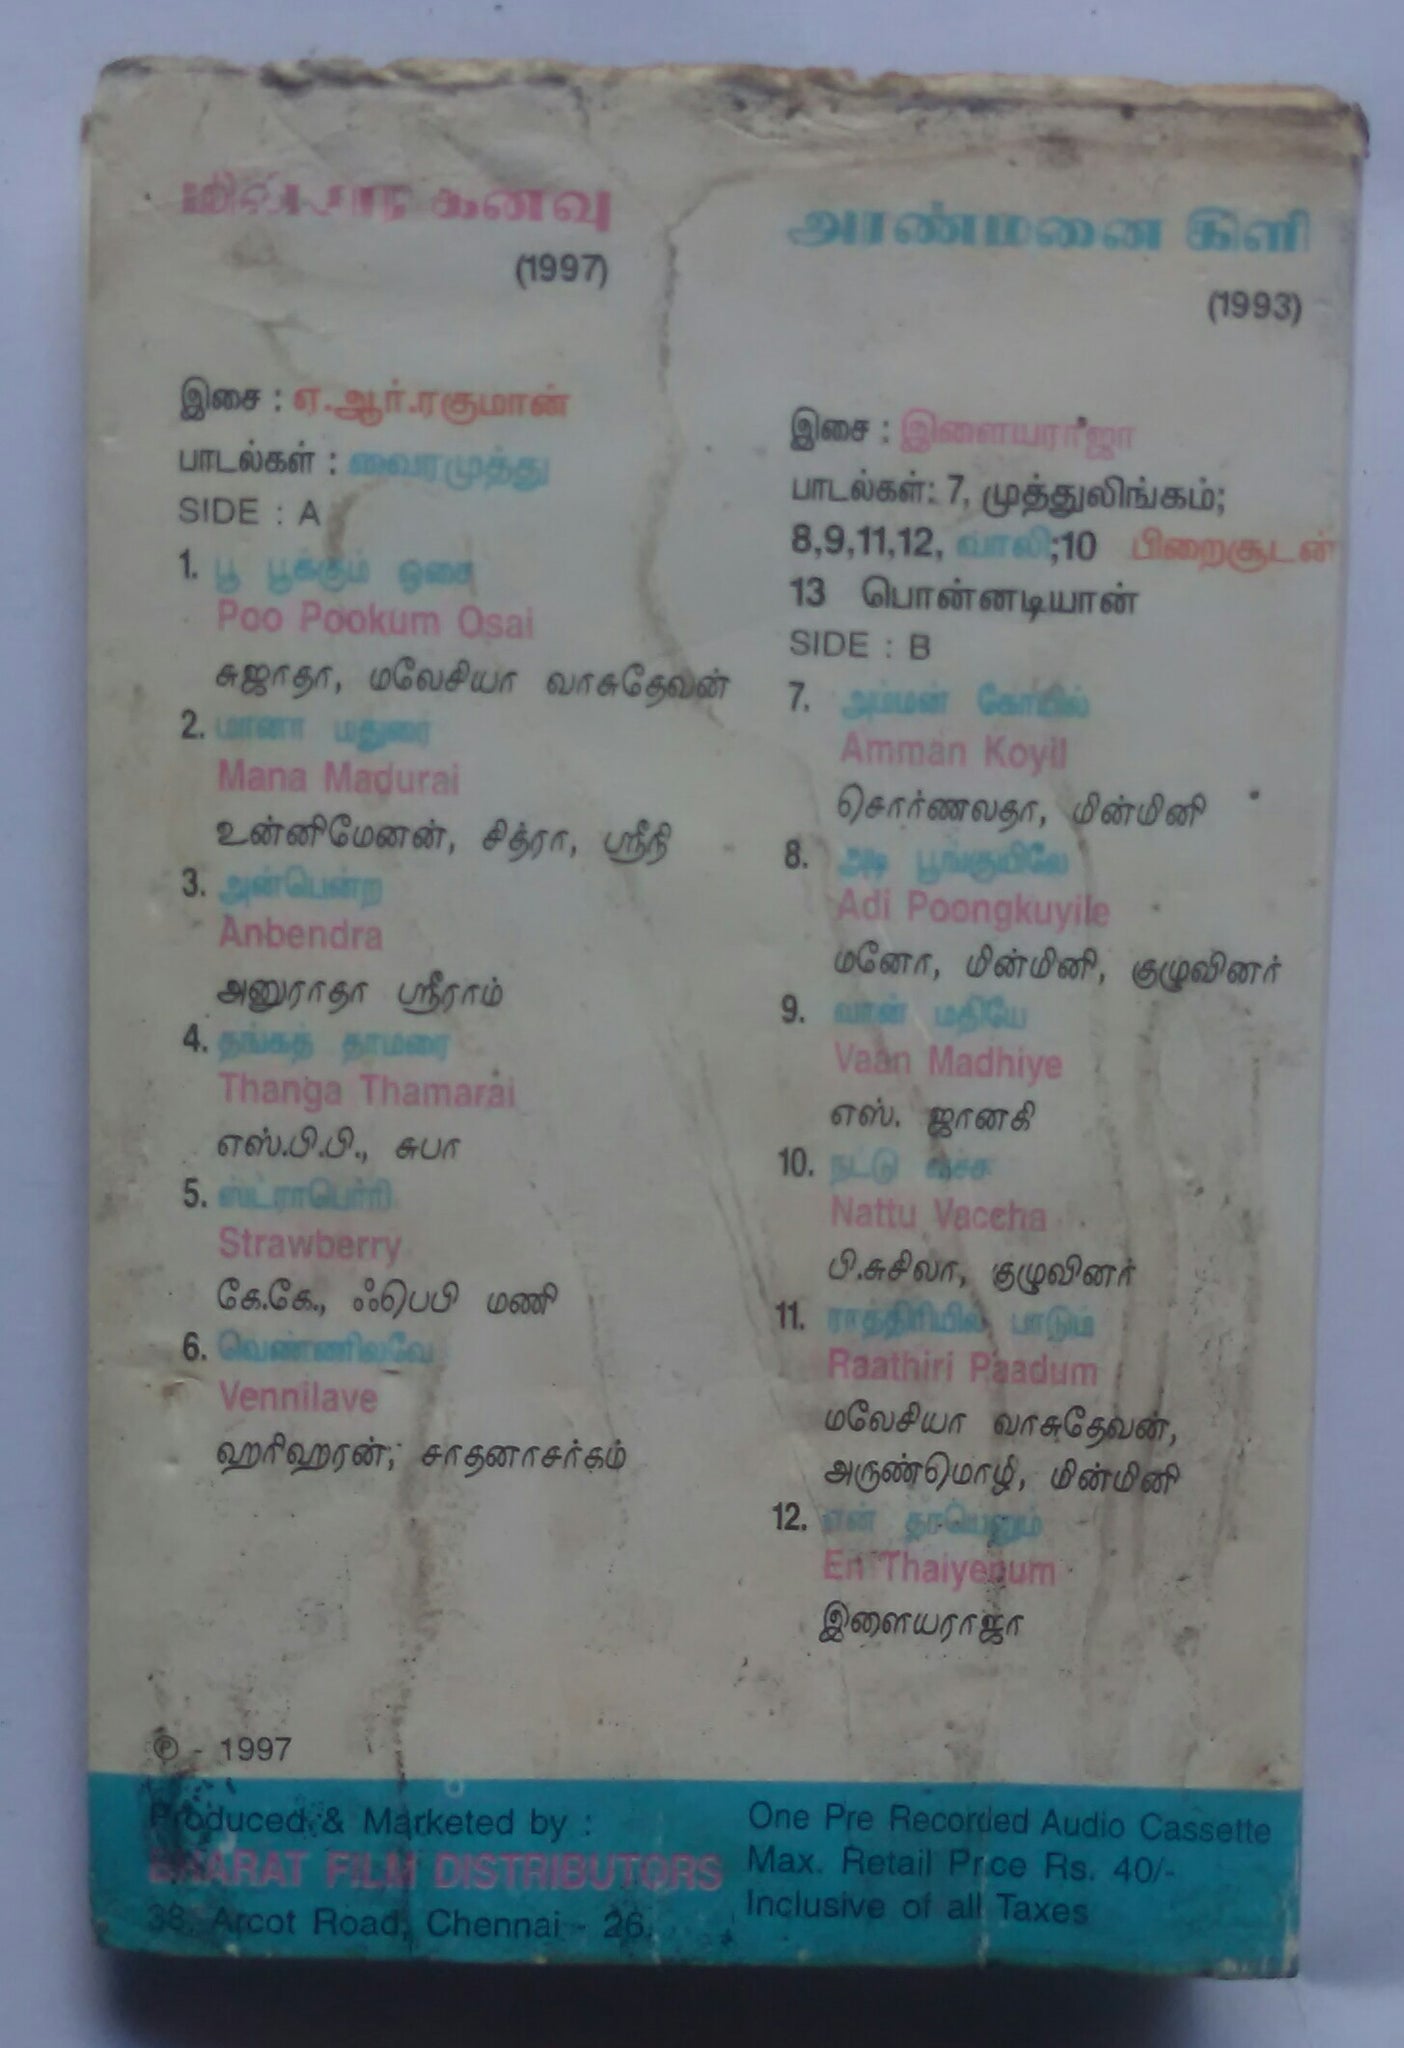 மின்சார கனவு
(1997)
இசை : ஏ.ஆர்.ரகுமான்
பாடல்கள் : வைரமுத்து
SIDE : A
1. பூ பூக்கும் ஓசை
Poo Pookum Osai
சுஜாதா, மலேசியா வாசுதேவன்
2. மானா மதுரை
Mana Madurai
உன்னிமேனன், சித்ரா, ஸ்ரீநி
3. அன்பென்ற
Anbendra
அனுராதா ஸ்ரீராம்
4. தங்கத் தாமரை
Thanga Thamarai
எஸ்.பி.பி., சுபா
5. ஸ்ட்ராபெர்ரி
Strawberry
கே.கே., ஃபெபி மணி
6. வெண்ணிலவே
Vennilave
ஹரிஹரன்; சாதனாசர்கம்
அரண்மனை கிளி
(1993)
இசை : இளையராஜா
பாடல்கள்: 7, முத்துலிங்கம்;
8,9,11,12, வாலி;10 பிறைசூடன்
13 பொன்னடியான்
SIDE : B
7. அம்மன் கோயில்
Amman Koyil
சொர்ணலதா, மின்மினி
8. அடி பூங்குயிலே
Adi Poongkuyile
மனோ, மின்மினி, குழுவினர்
9. வான் மதியே
Vaan Madhiye
எஸ். ஜானகி
10. நட்டு வச்ச
Nattu Vaccha
பி.சுசிலா, குழுவினர்
11. ராத்திரியில் பாடும்
Raathiri Paadum
மலேசியா வாசுதேவன்,
அருண்மொழி, மின்மினி
12. என் தாயெனும்
En Thaiyenum
இளையராஜா
℗ - 1997
Produced & Marketed by :
BHARAT FILM DISTRIBUTORS
38, Arcot Road, Chennai - 26.
One Pre Recorded Audio Cassette
Max. Retail Price Rs. 40/-
Inclusive of all Taxes